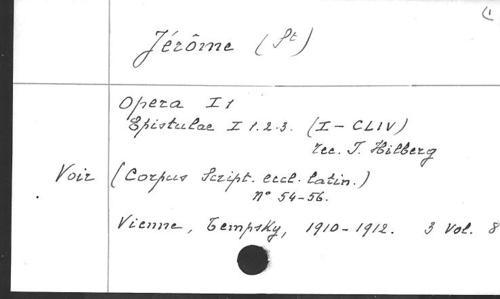 (1
Jérôme (St)
Opera I 1
Epistulae I 1.2.3. (I - CLIV)
rec. I. Hilberg
Voir (Corpus Script. eccl. latin.)
N° 54-56.
Vienne, Tempsky, 1910-1912. 3 vol. 8